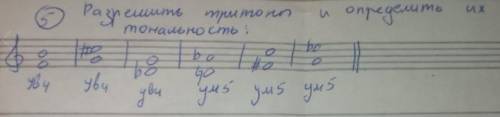 5 Разрешить тритоны и определить их
тональность:
ув4 ув4 ув4 ум5 ум5 ум5